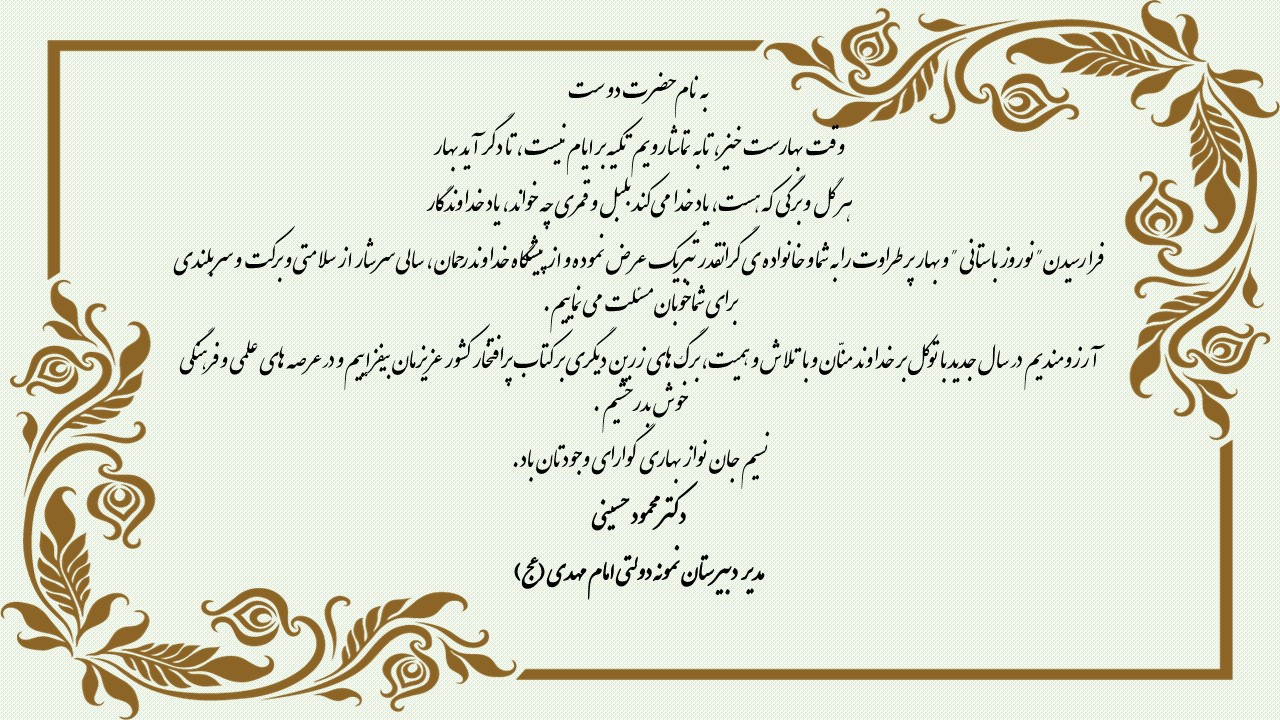 به نام حضرت دوست
وقت بهارست خیز، تا به تماشا رویم تکیه بر ایام نیست، تا دگر آید بهار
هر گل و برگی که هست، یاد خدا می کند بلبل و قمری چه خواند، یاد خداوندگار
فرا رسیدن "نوروز باستانی" و بهار پر طراوت را به شما و خانواده ی گرانقدر تبریک عرض نموده و از پیشگاه خداوند رحمان، سالی سرشار از سلامتی و برکت و سربلندی
برای شما خوبان مسئلت می نماییم .
آرزومندیم در سال جدید با توکل بر خداوند منّان و با تلاش و همیت، برگ های زرین دیگری بر کتاب پرافتخار کشور عزیزمان بیفزاییم و در عرصه های علمی و فرهنگی
خوش بدرخشیم .
نسیم جان نواز بهاری گوارای وجودتان باد.
دکتر محمود حسینی
مدیر دبیرستان نمونه دولتی امام مهدی (عج)